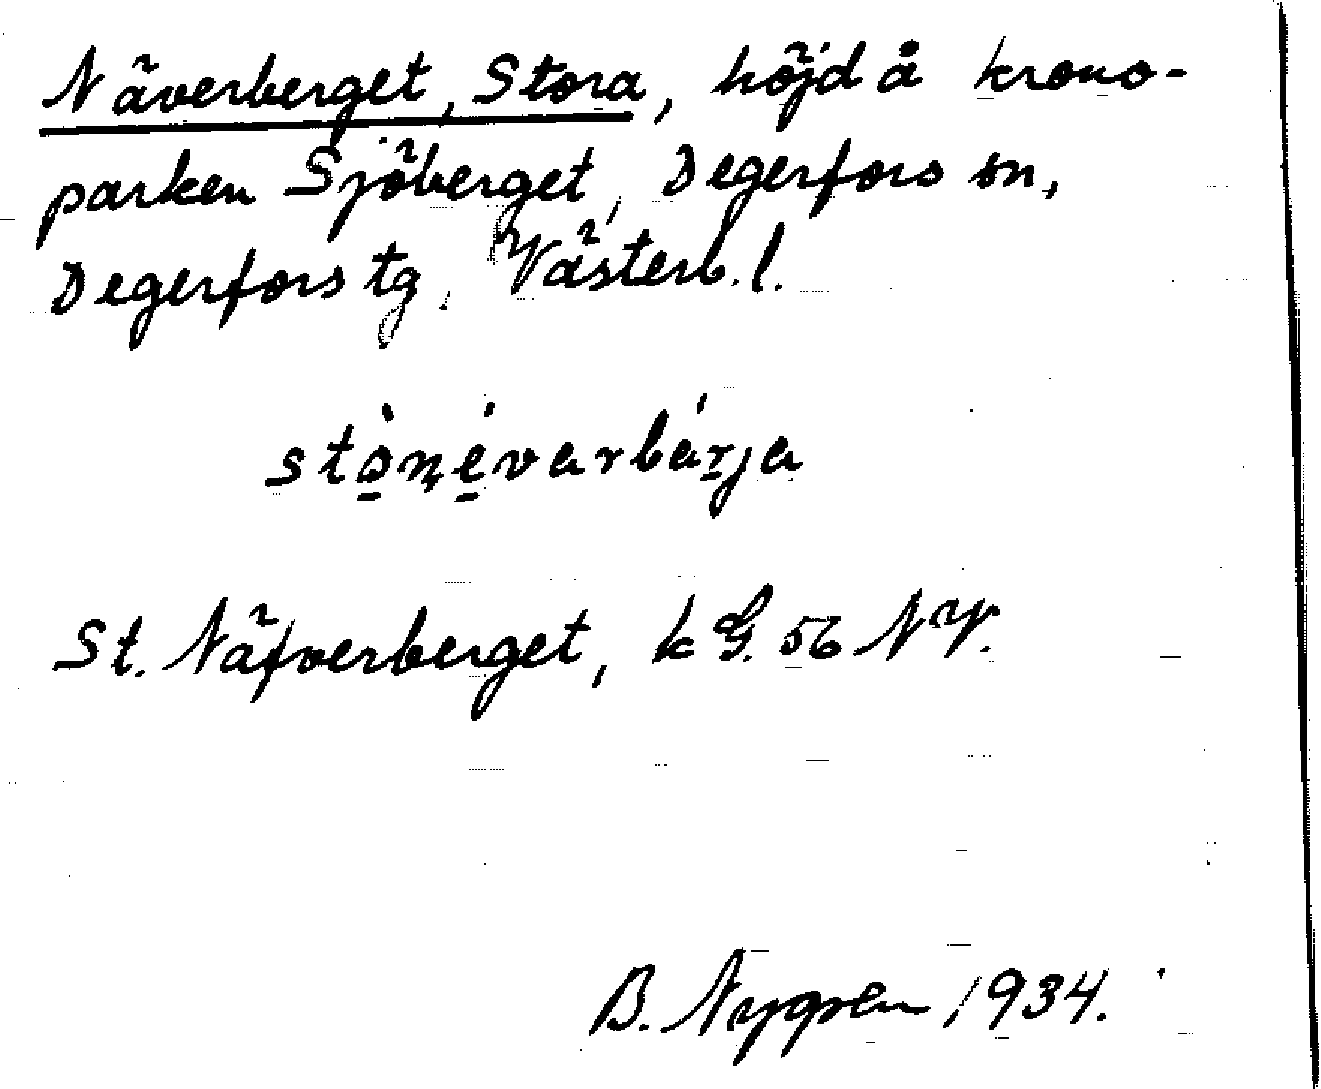 Näverberget, Stora, höjd å krono-
parken Sjöberget, Degerfors sn,
Degerfors tg, Västerb. l.
stò̱ṇé̱varbár̲ja
St. Näfverberget, k G. 56 NV.
B. Nygren 1934.